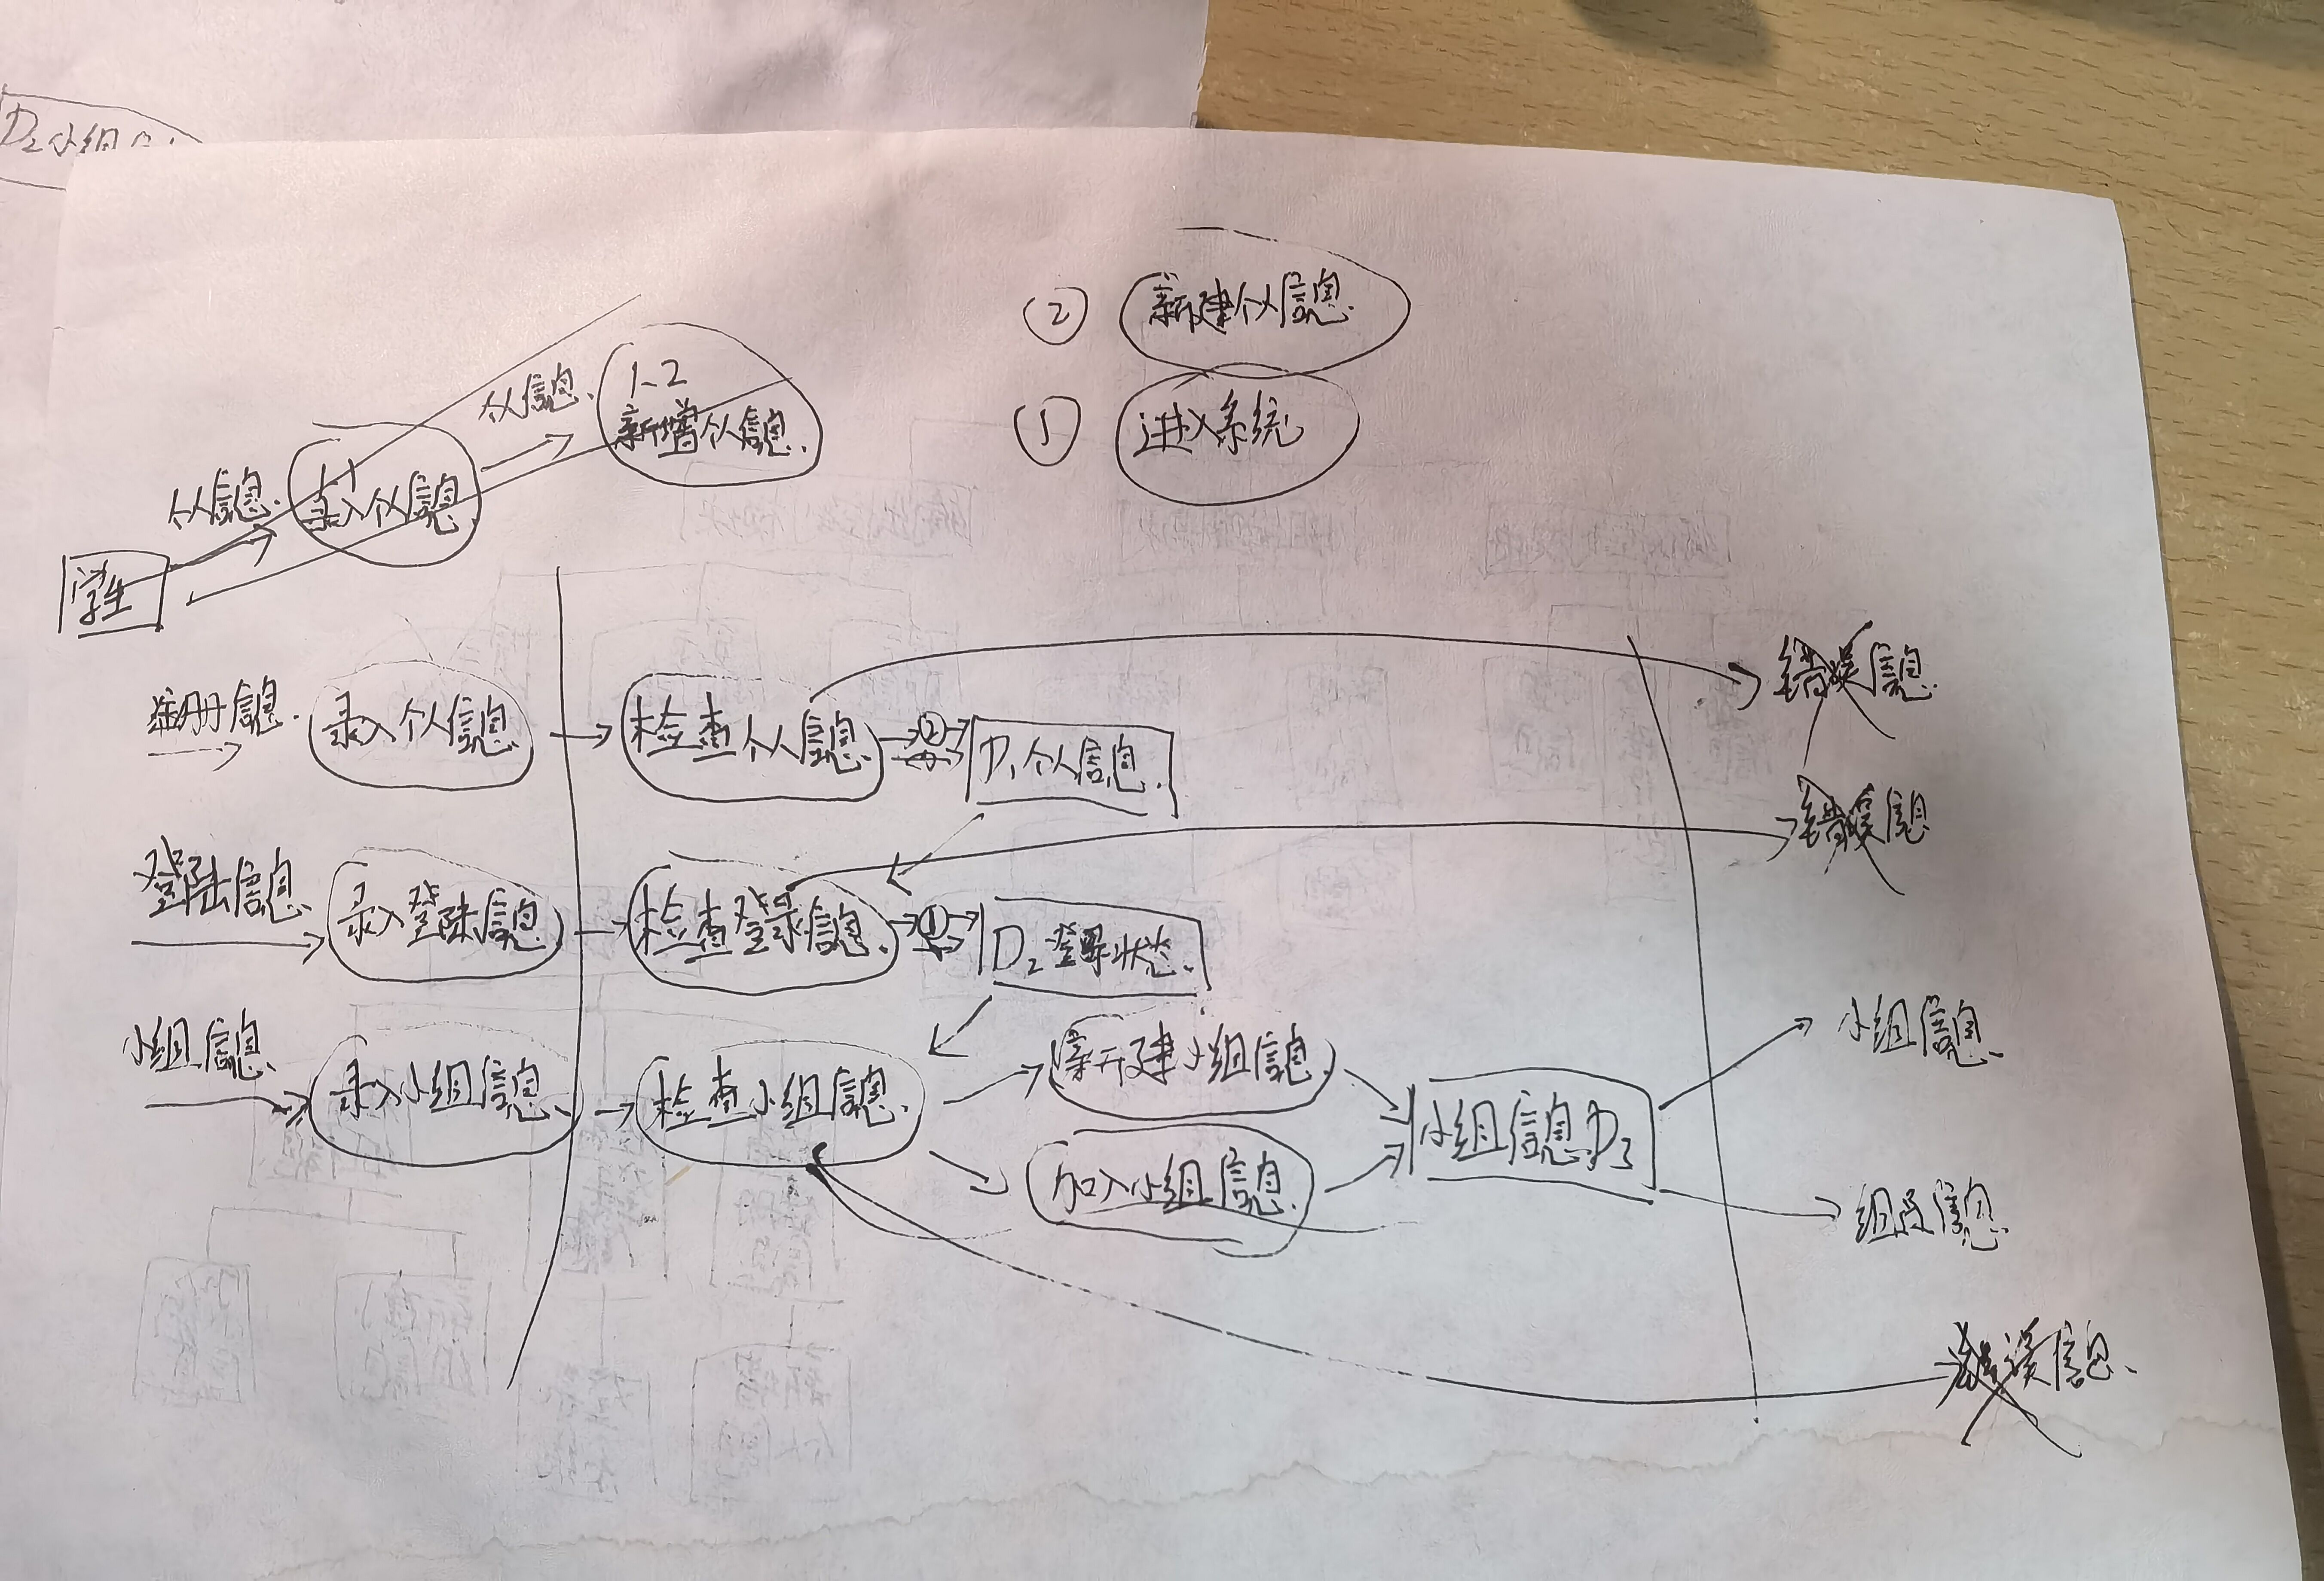 D₂小组
② 新建个人信息.
① 进入系统
个人信息. 1.2
新增个人信息.
个人信息. 1.1
录入个人信息
学生
注册信息. 录入个人信息 检查个人信息. ② D₁个人信息. 错误信息.
登陆信息 录入登陆信息 检查登录信息. ① D₂登录状态. 错误信息
小组信息 录入小组信息 检查小组信息. 新建小组信息. 小组信息D₃ 小组信息.
加入小组信息. 组员信息.
错误信息.